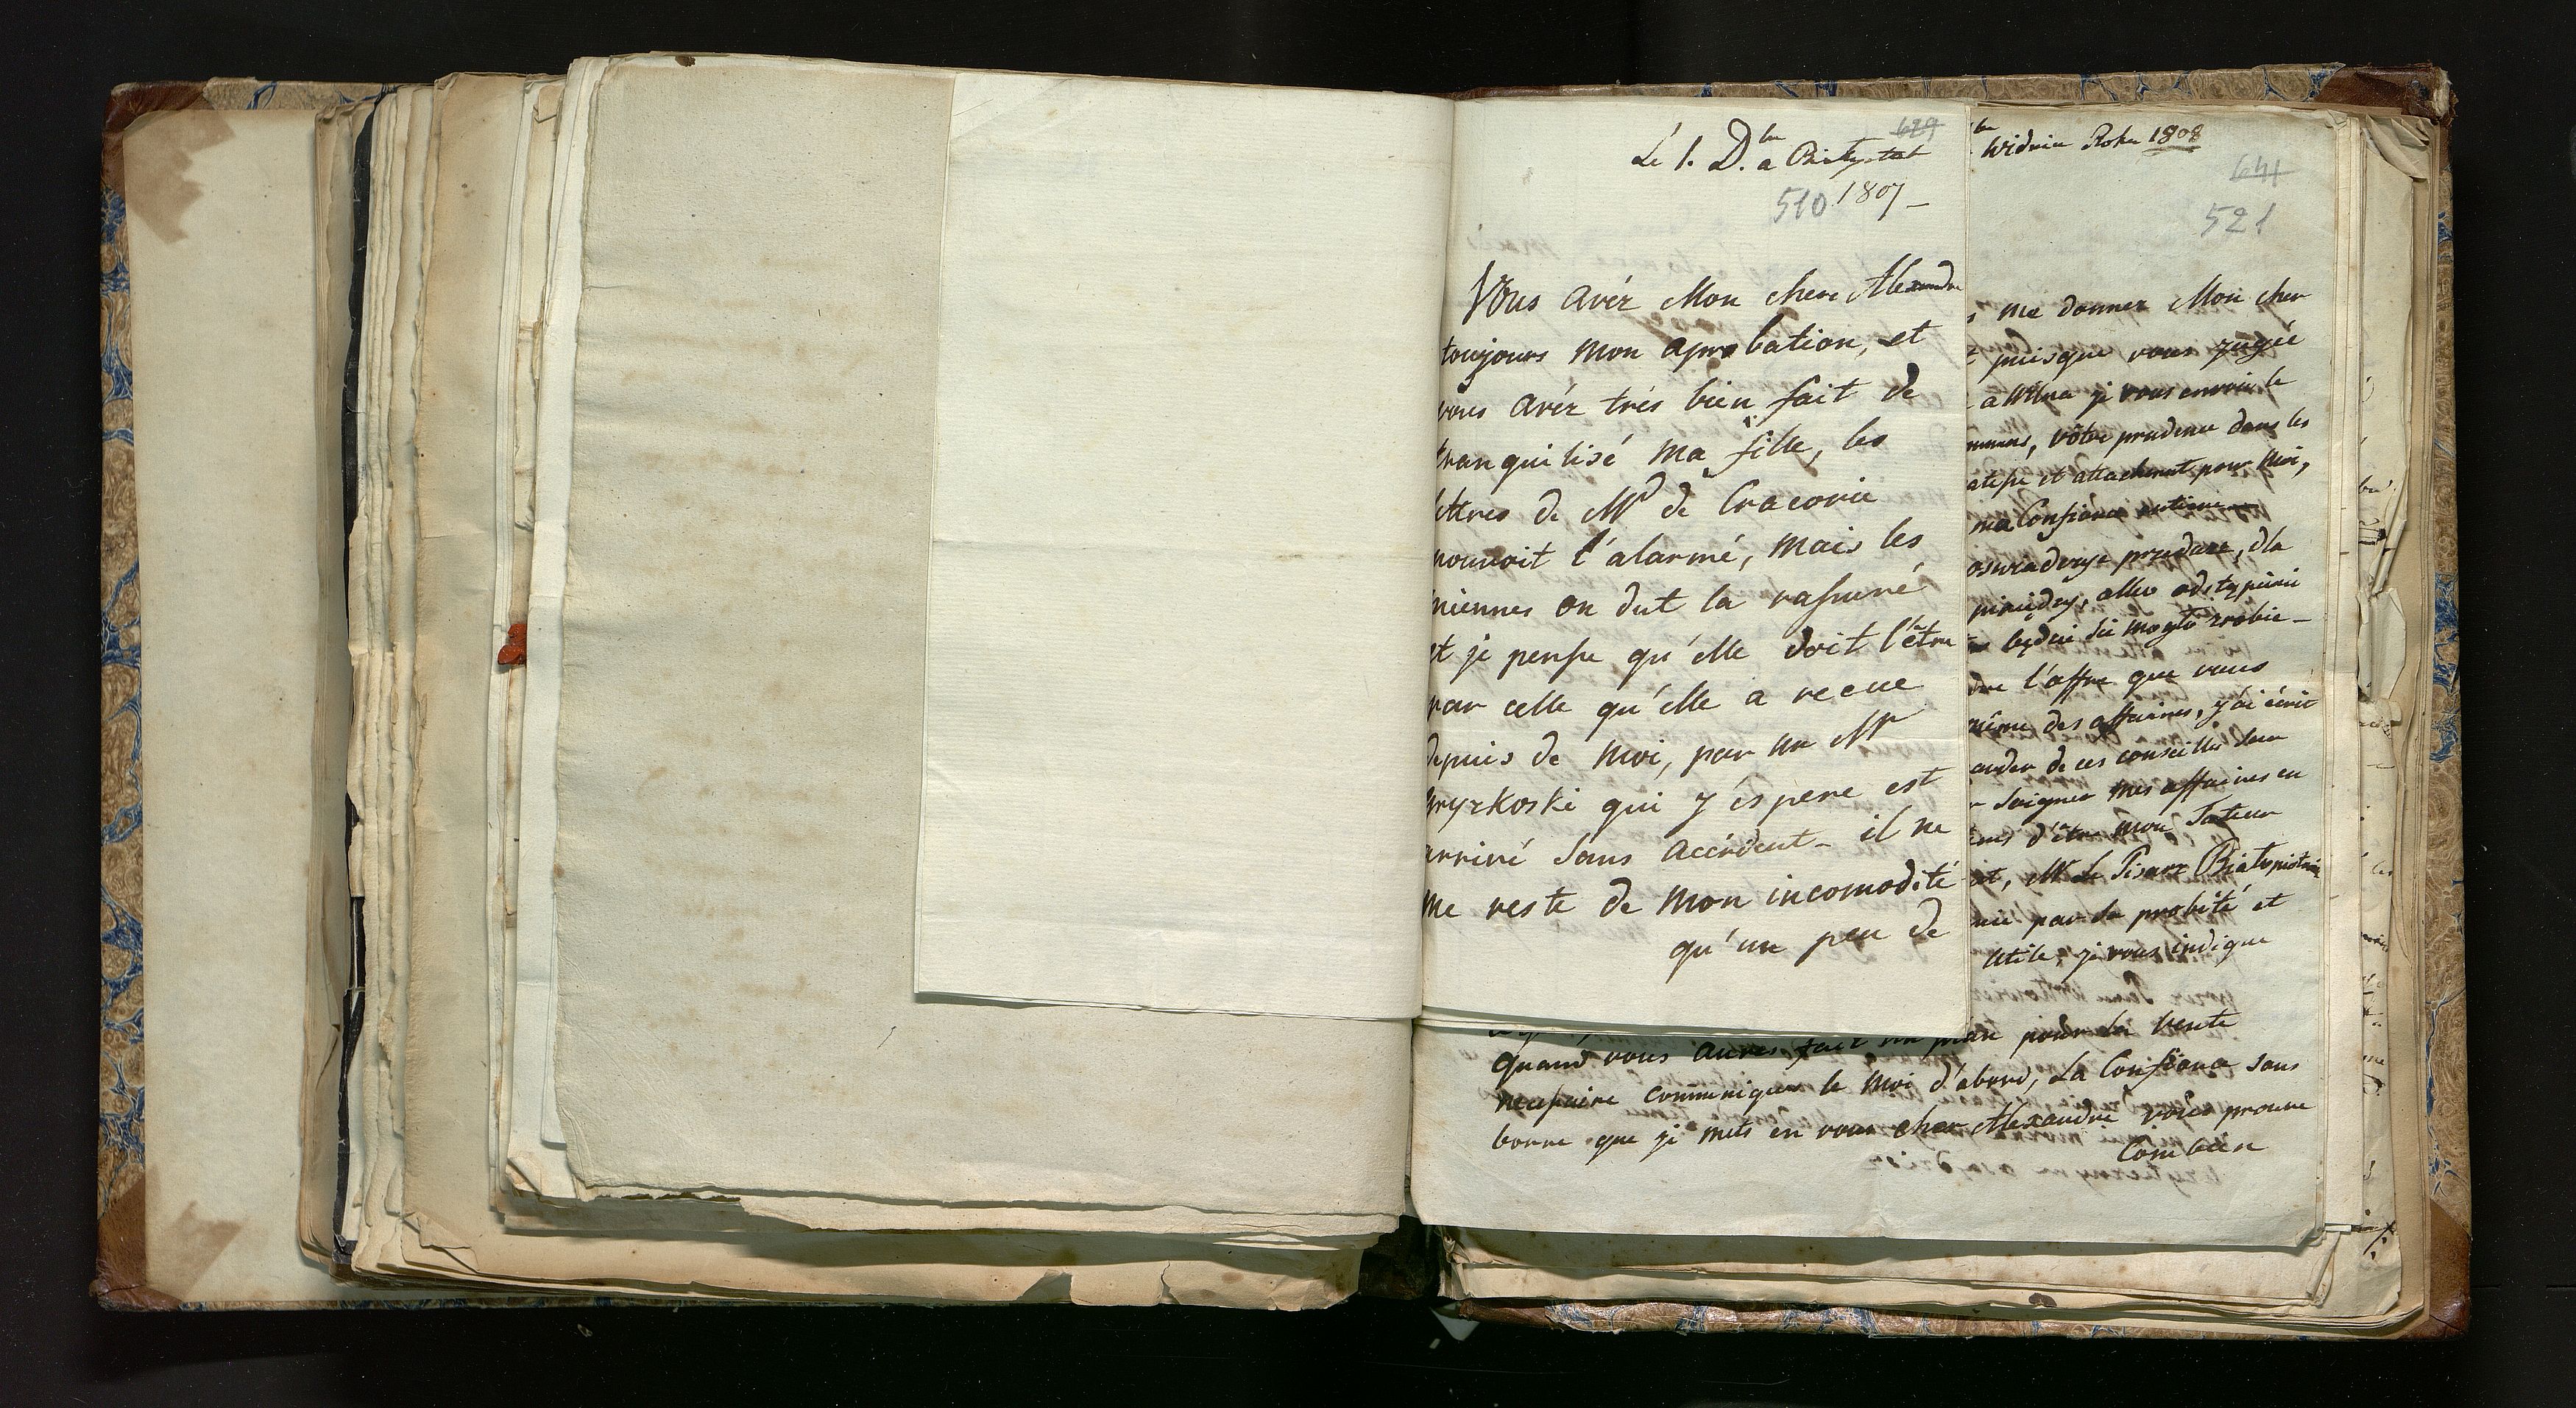 629
Le 1. D.bre a Białystok
510 1807_
Vous avéz Mon cher Alexandre
toujours mon aprobation, et
vous avéz trés bien fait de
tranquilisé ma fille, les
lettres de Md de Cracovie
pouvoit l'alarmé, mais les
miennes on dut la rassuré
et je pense qu'elle doit l'être
par celle qu'elle a recue
depuis de moi, par un Mr
Gryzkoski qui j'éspere est
arrivé sans accident_ il ne
me reste de mon incomodité
qu'un peu de
Widnia Roku 1808
644
521
me donner Mon cher
puisque vous jugée
a Wilna je vous envoie le
vôtre prudence dans les
et attachement pour moi,
ma Confiance entiere
przedaze, dla
się mogło zrobić_
l'offre que vous
des affaires, j'ai écrit
de ces conseilles sur
soigner mes affaires en
d'être mon Tuteur
Mr Le Pisarz
par sa probité et
utile, je vous indique
quand vous aures fait un plan pour la vente
necessaire communiquer le moi d'abord, La Confiance sans
borne que je mets en vous cher Alexandre vous prouve
Combien